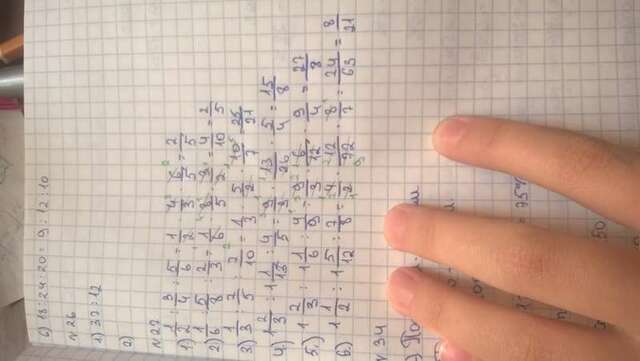 6) 18:24:20 = 9:12:10
№26
1) 37:12
2)
№27
1) 1/2 : 3/4 : 5/6 = 1/2 · 4/3 · 6/5 = 2/5
2) 1/6 : 5/8 : 2/3 = 1/6 · 8/5 · 3/2 = 4/10 = 2/5
3) 1/3 : 2/5 : 7/10 = 1/3 · 5/2 · 10/7 = 25/21
4.) 1 2/3 : 1 1/13 : 4/5 = 9/3 · 13/26 · 5/4 = 15/8
5.) 1 2/3 : 1 1/6 : 4/9 = 9/3 · 6/12 · 9/4 = 27/8
6.) 1 1/2 : 1 5/12 : 7/8 = 4/2 · 12/72 · 8/7 = 24/63 = 8/21
№34
= 75%
50